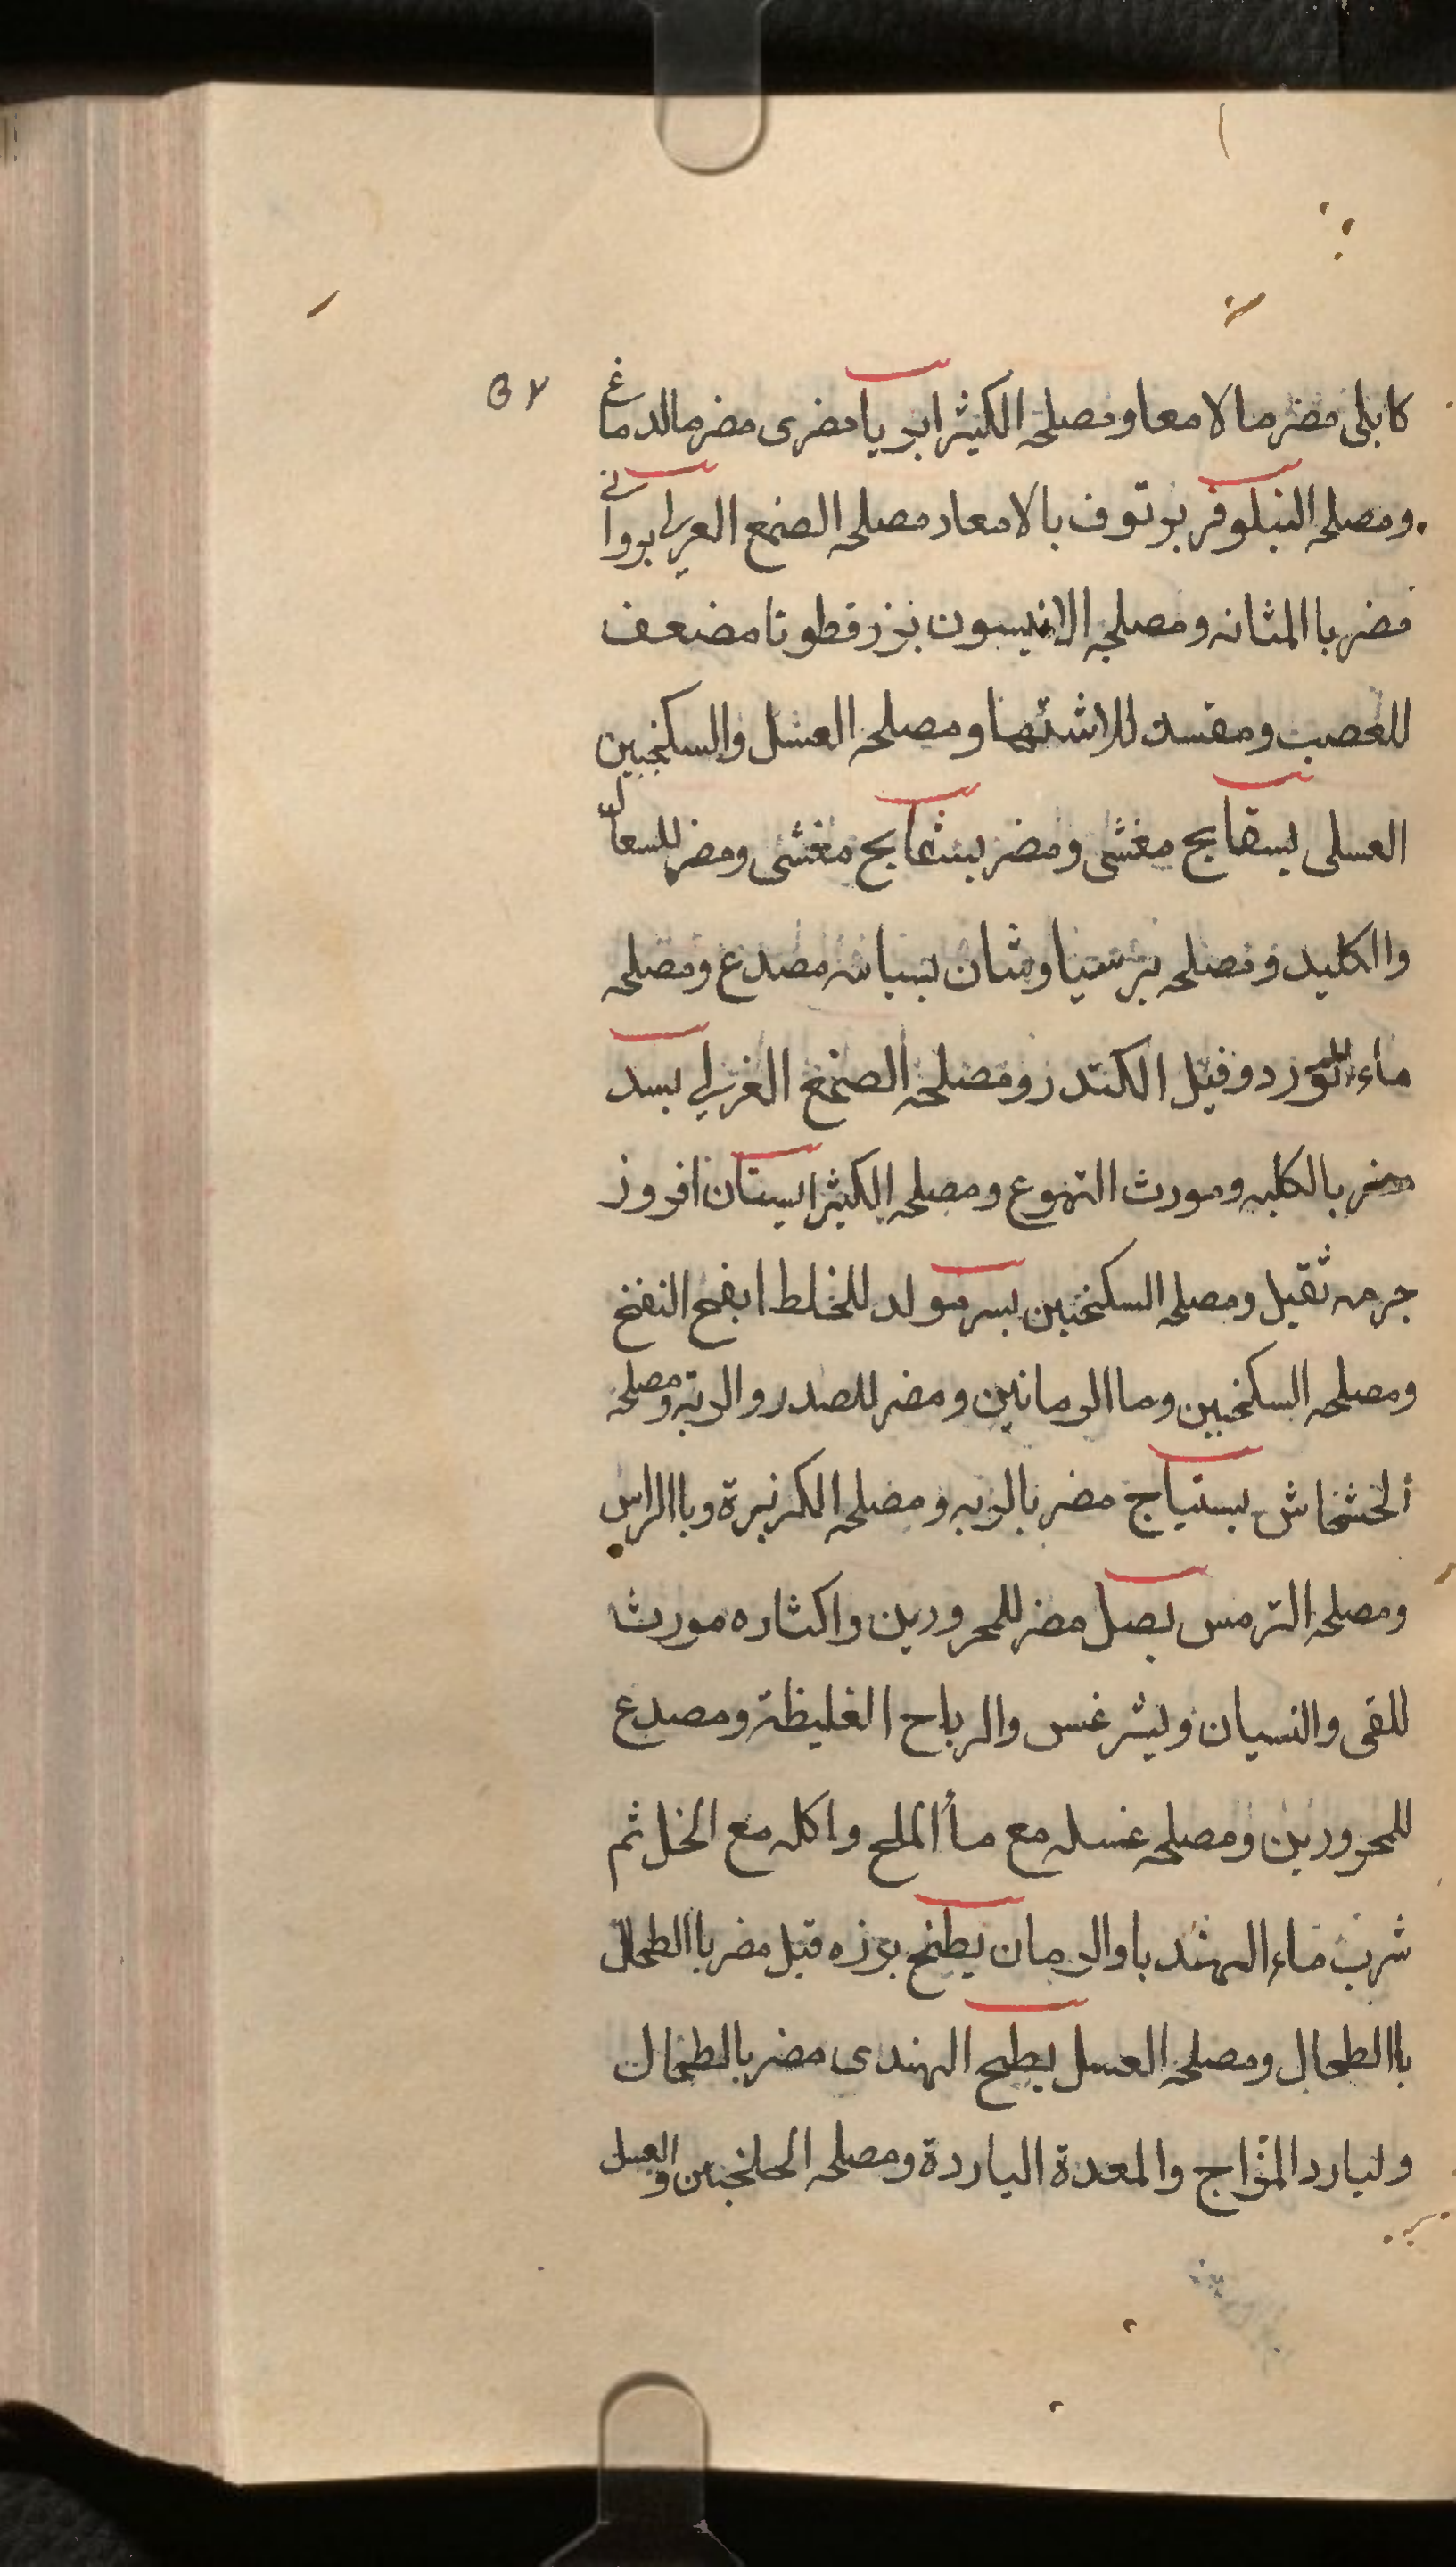 ٥٧
كابلى مضرما لامعا ومصلحه الكثيرا بويا مضرى مضرمالدماغ
ومصلحه النيلوفر بوتوف بالامعاد مصلحه الصمغ العربى بورانى
مضر باالمثانه ومصلحه الانيسون بزر قطونا مضعف
للعصب ومفسد للاشتها ومصلحه العسل والسكنجبين
العسلى بسفايج مغشى ومضر بسفايج مغشى ومضر للسعال
والكليد ومصلحه برسياوشان بسباسه مصدع ومصلحه
ماء الورد وقيل الكندر ومصلحه الصمغ العربى بسد
مضر بالكليه ومورث التهوع ومصلحه الكثيرا بستان افروز
جرمه ثقيل ومصلحه السكنجبين بسر مولد للخلط ابفج النفخ
ومصلحه السكنجبين وما الرمانين ومضر للصدر والريه ومصلحه
الخشخاش بستياج مضر بالريه ومصلحه الكزبرة وباالراس
ومصلحه الترمس بصل مضر للمحرورين واكثاره مورث
للقى والنسيان وليثرغس والرياح الغليظة ومصدع
للمحرورين ومصلحه غسله مع مأ الملح واكله مع الخل ثم
شرب ماء الهندبا والرمان بطيخ بوزه قيل مضر باالطحال
باالطحال ومصلحه العسل بطيخ الهندى مضر بالطحال
ولبارد المزاج والمعدة الباردة ومصلحه الجلنجبين والعسل